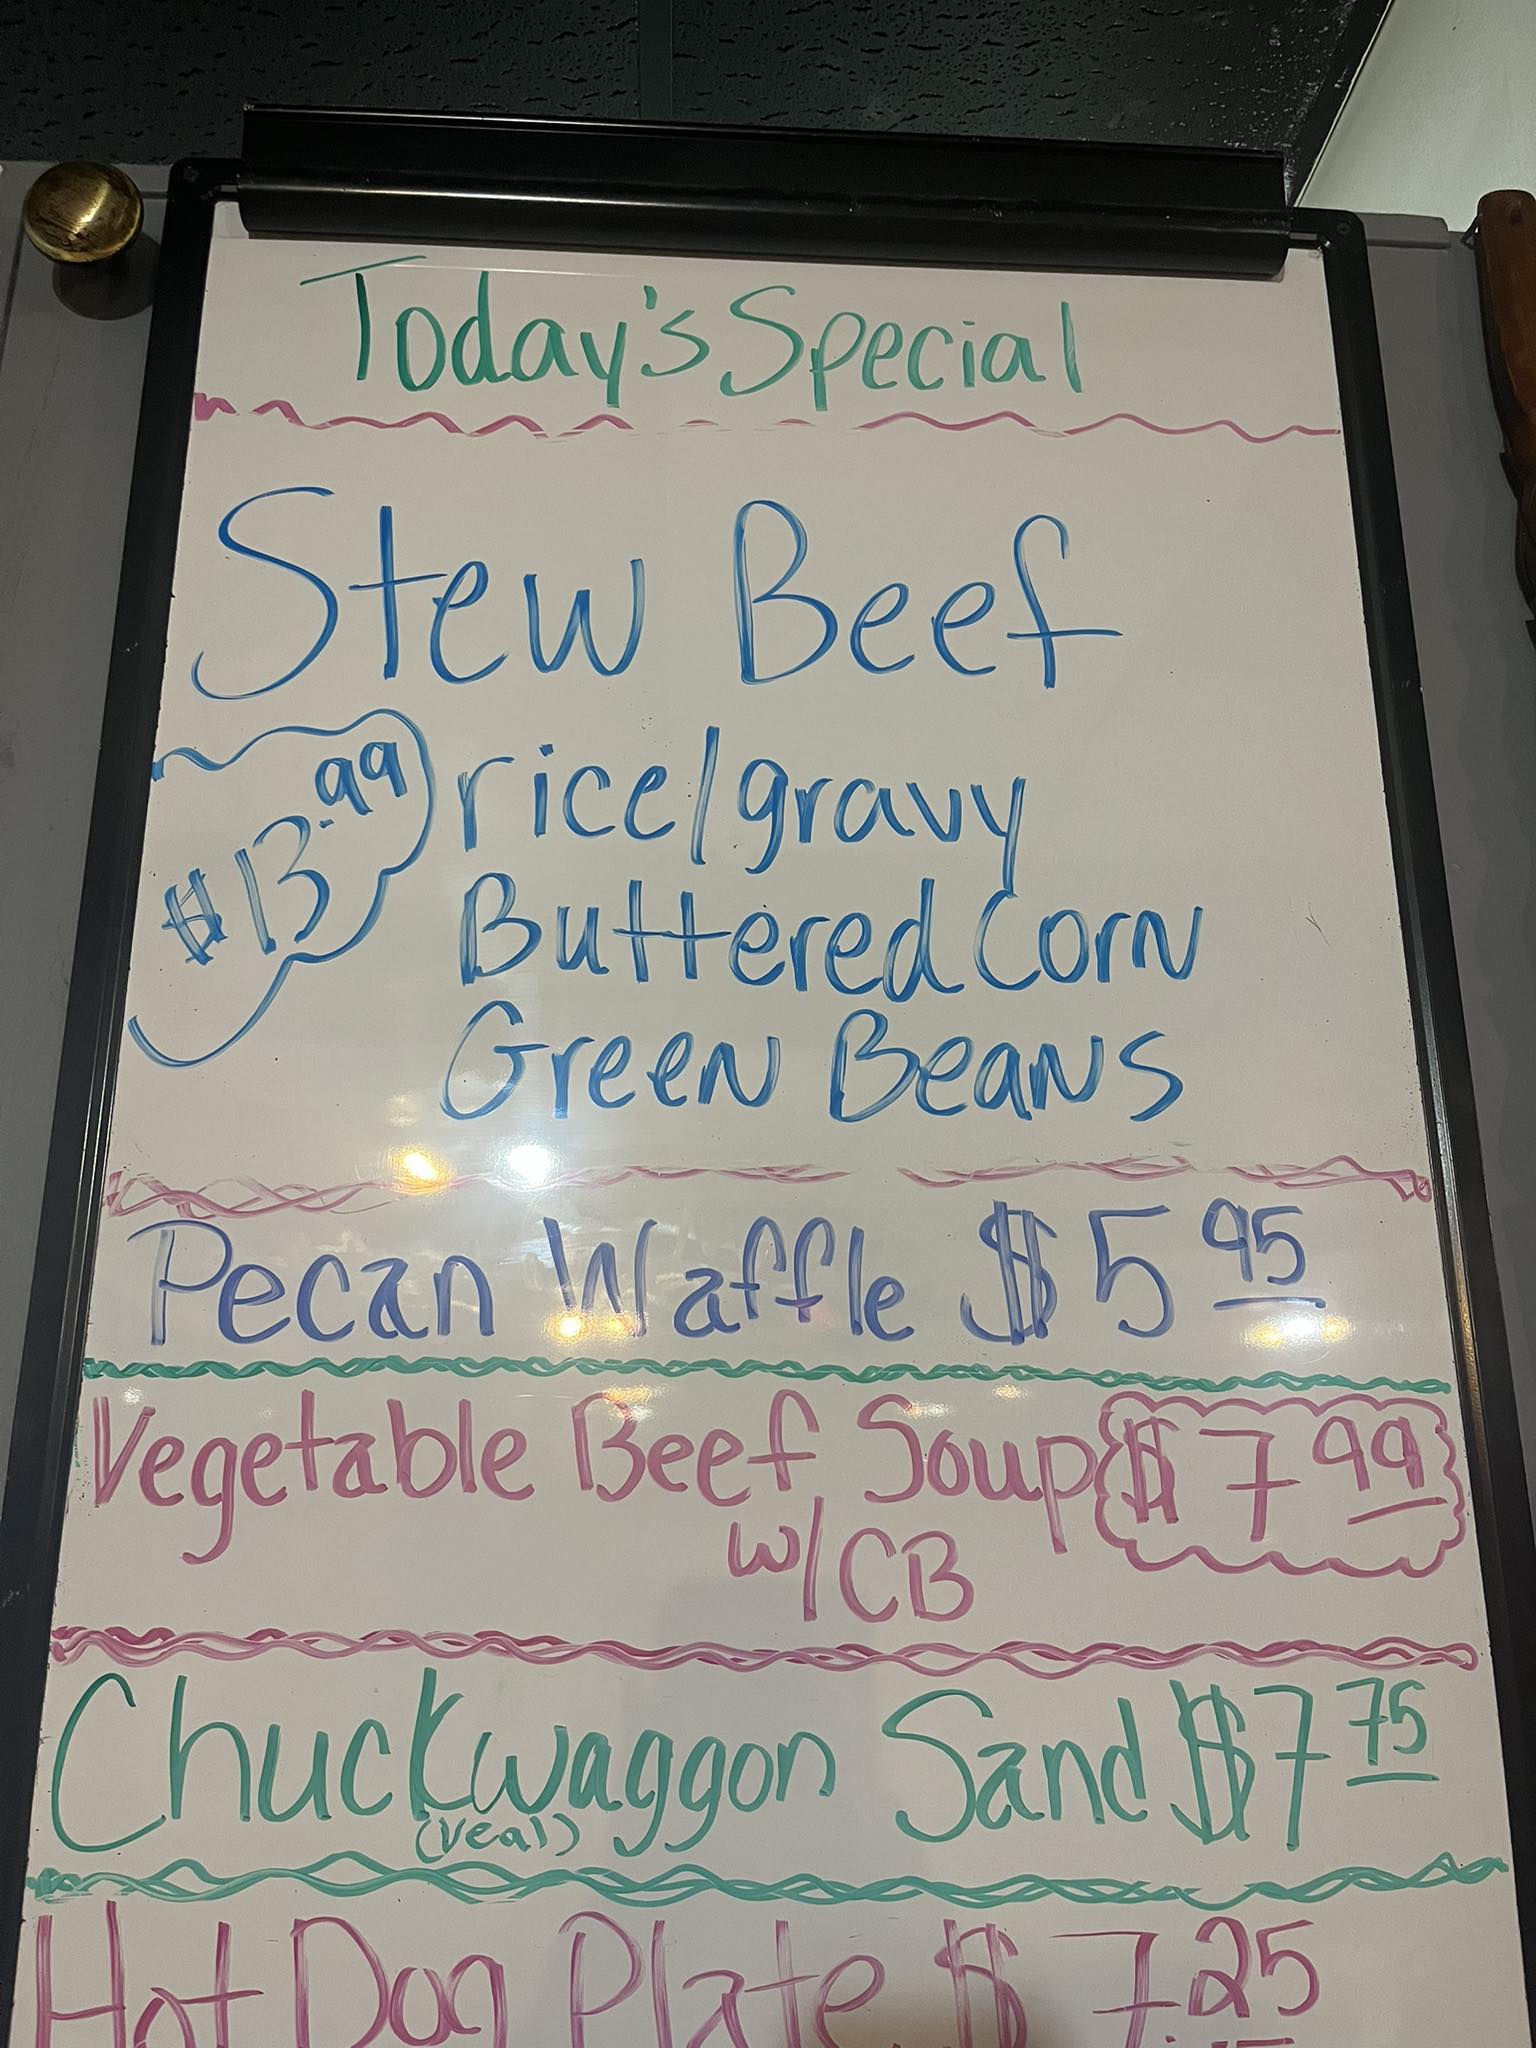 Today's Special
Stew Beef
$13.99
rice/gravy
Buttered Corn
Green Beans
Pecan Waffle $5 95
Vegetable Beef Soup $7 99
w/CB
Chuckwaggon Sand $7 75
(veal)
Hot Dog Plate $7.25